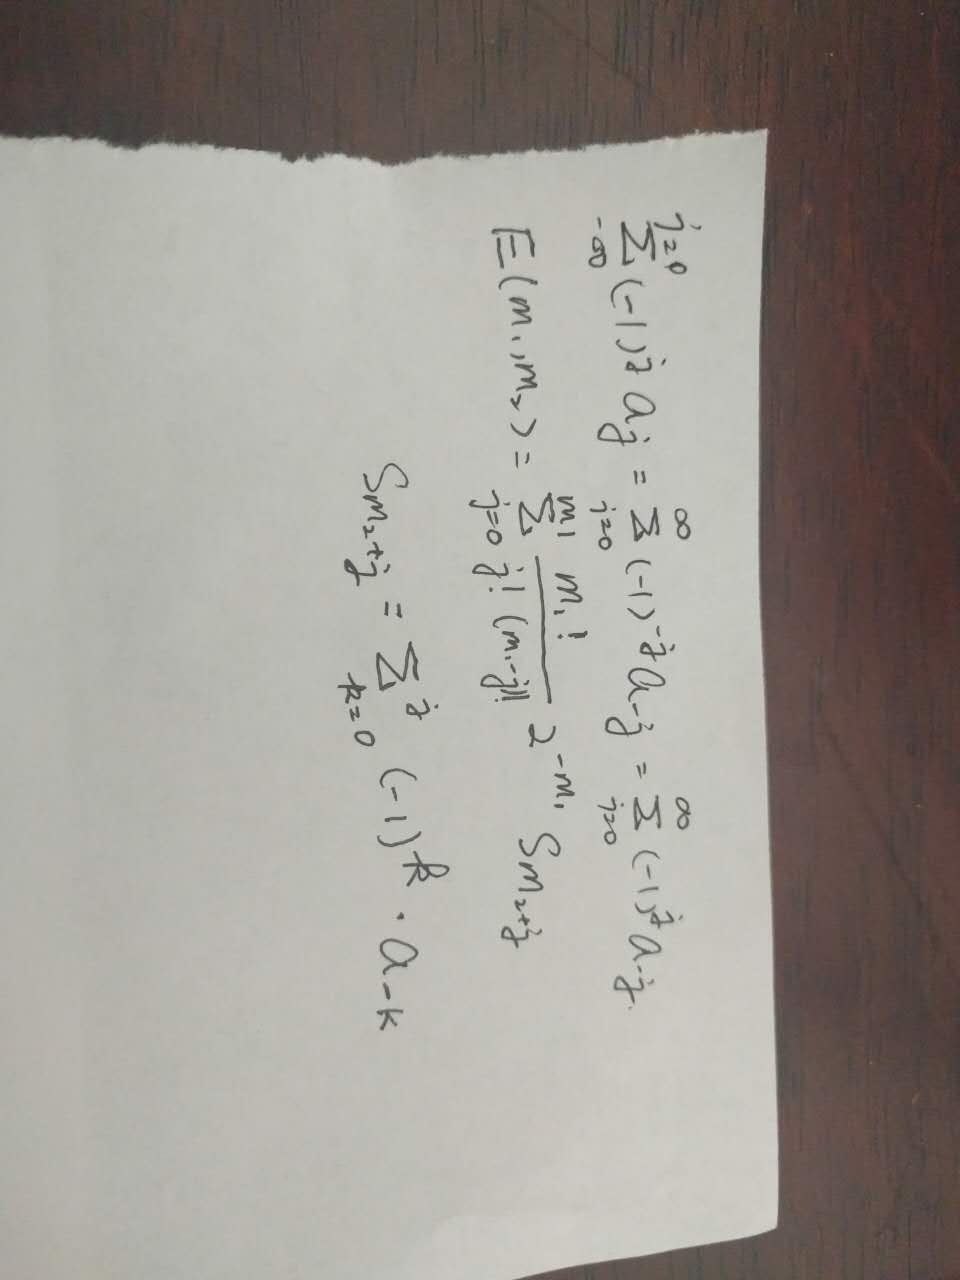 $\sum_{-\infty}^{j=0} (-1)^j a_j = \sum_{j=0}^{\infty} (-1)^{-j} a_{-j} = \sum_{j=0}^{\infty} (-1)^j a_{-j}.$
$E(m_1, m_2) = \sum_{j=0}^{m_1} \frac{m_1!}{j!(m_1-j)!} 2^{-m_1} S_{m_2+j}$
$S_{m_2+j} = \sum_{k=0}^{j} (-1)^k \cdot a_{-k}$